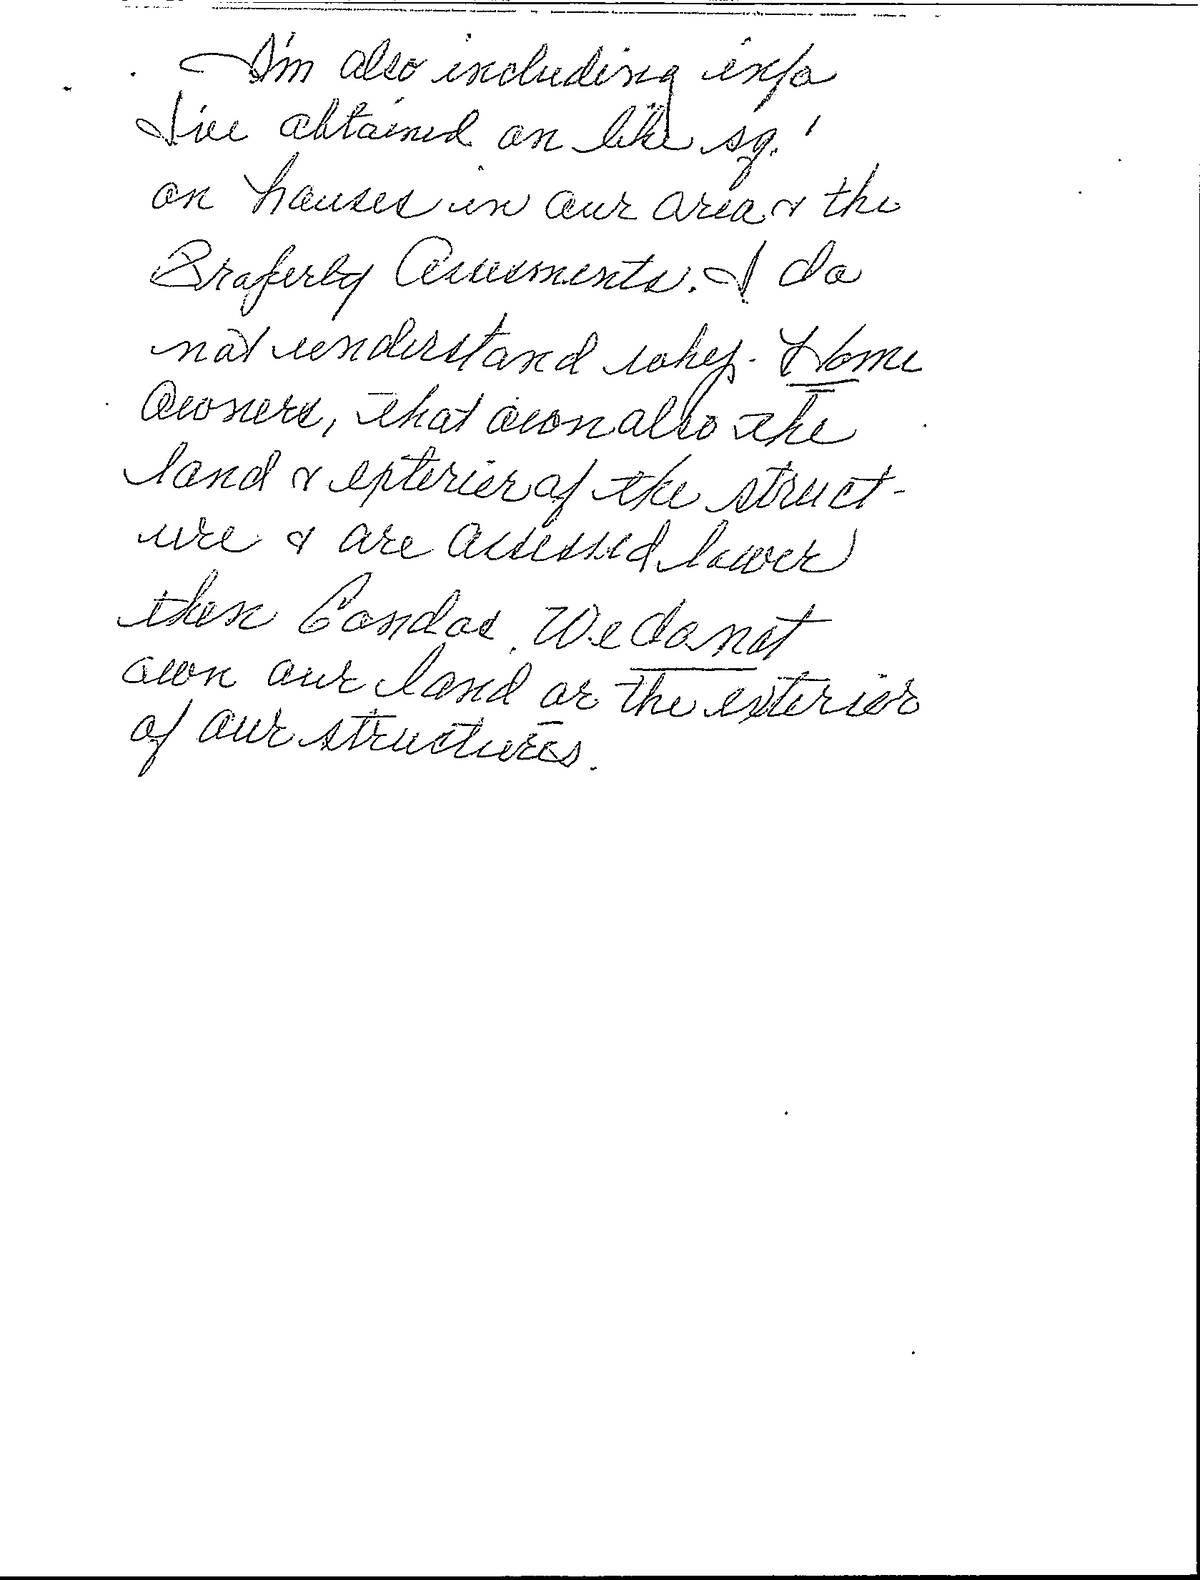 I'm also including info
I've obtained on like sq. '
on houses in our area & the
Property Assessments. I do
not understand why Home
Owners, that own also the
land & exterior of the struct-
ure & are assessed lower
then Condos. We do not
own our land or the exterior
of our structures.